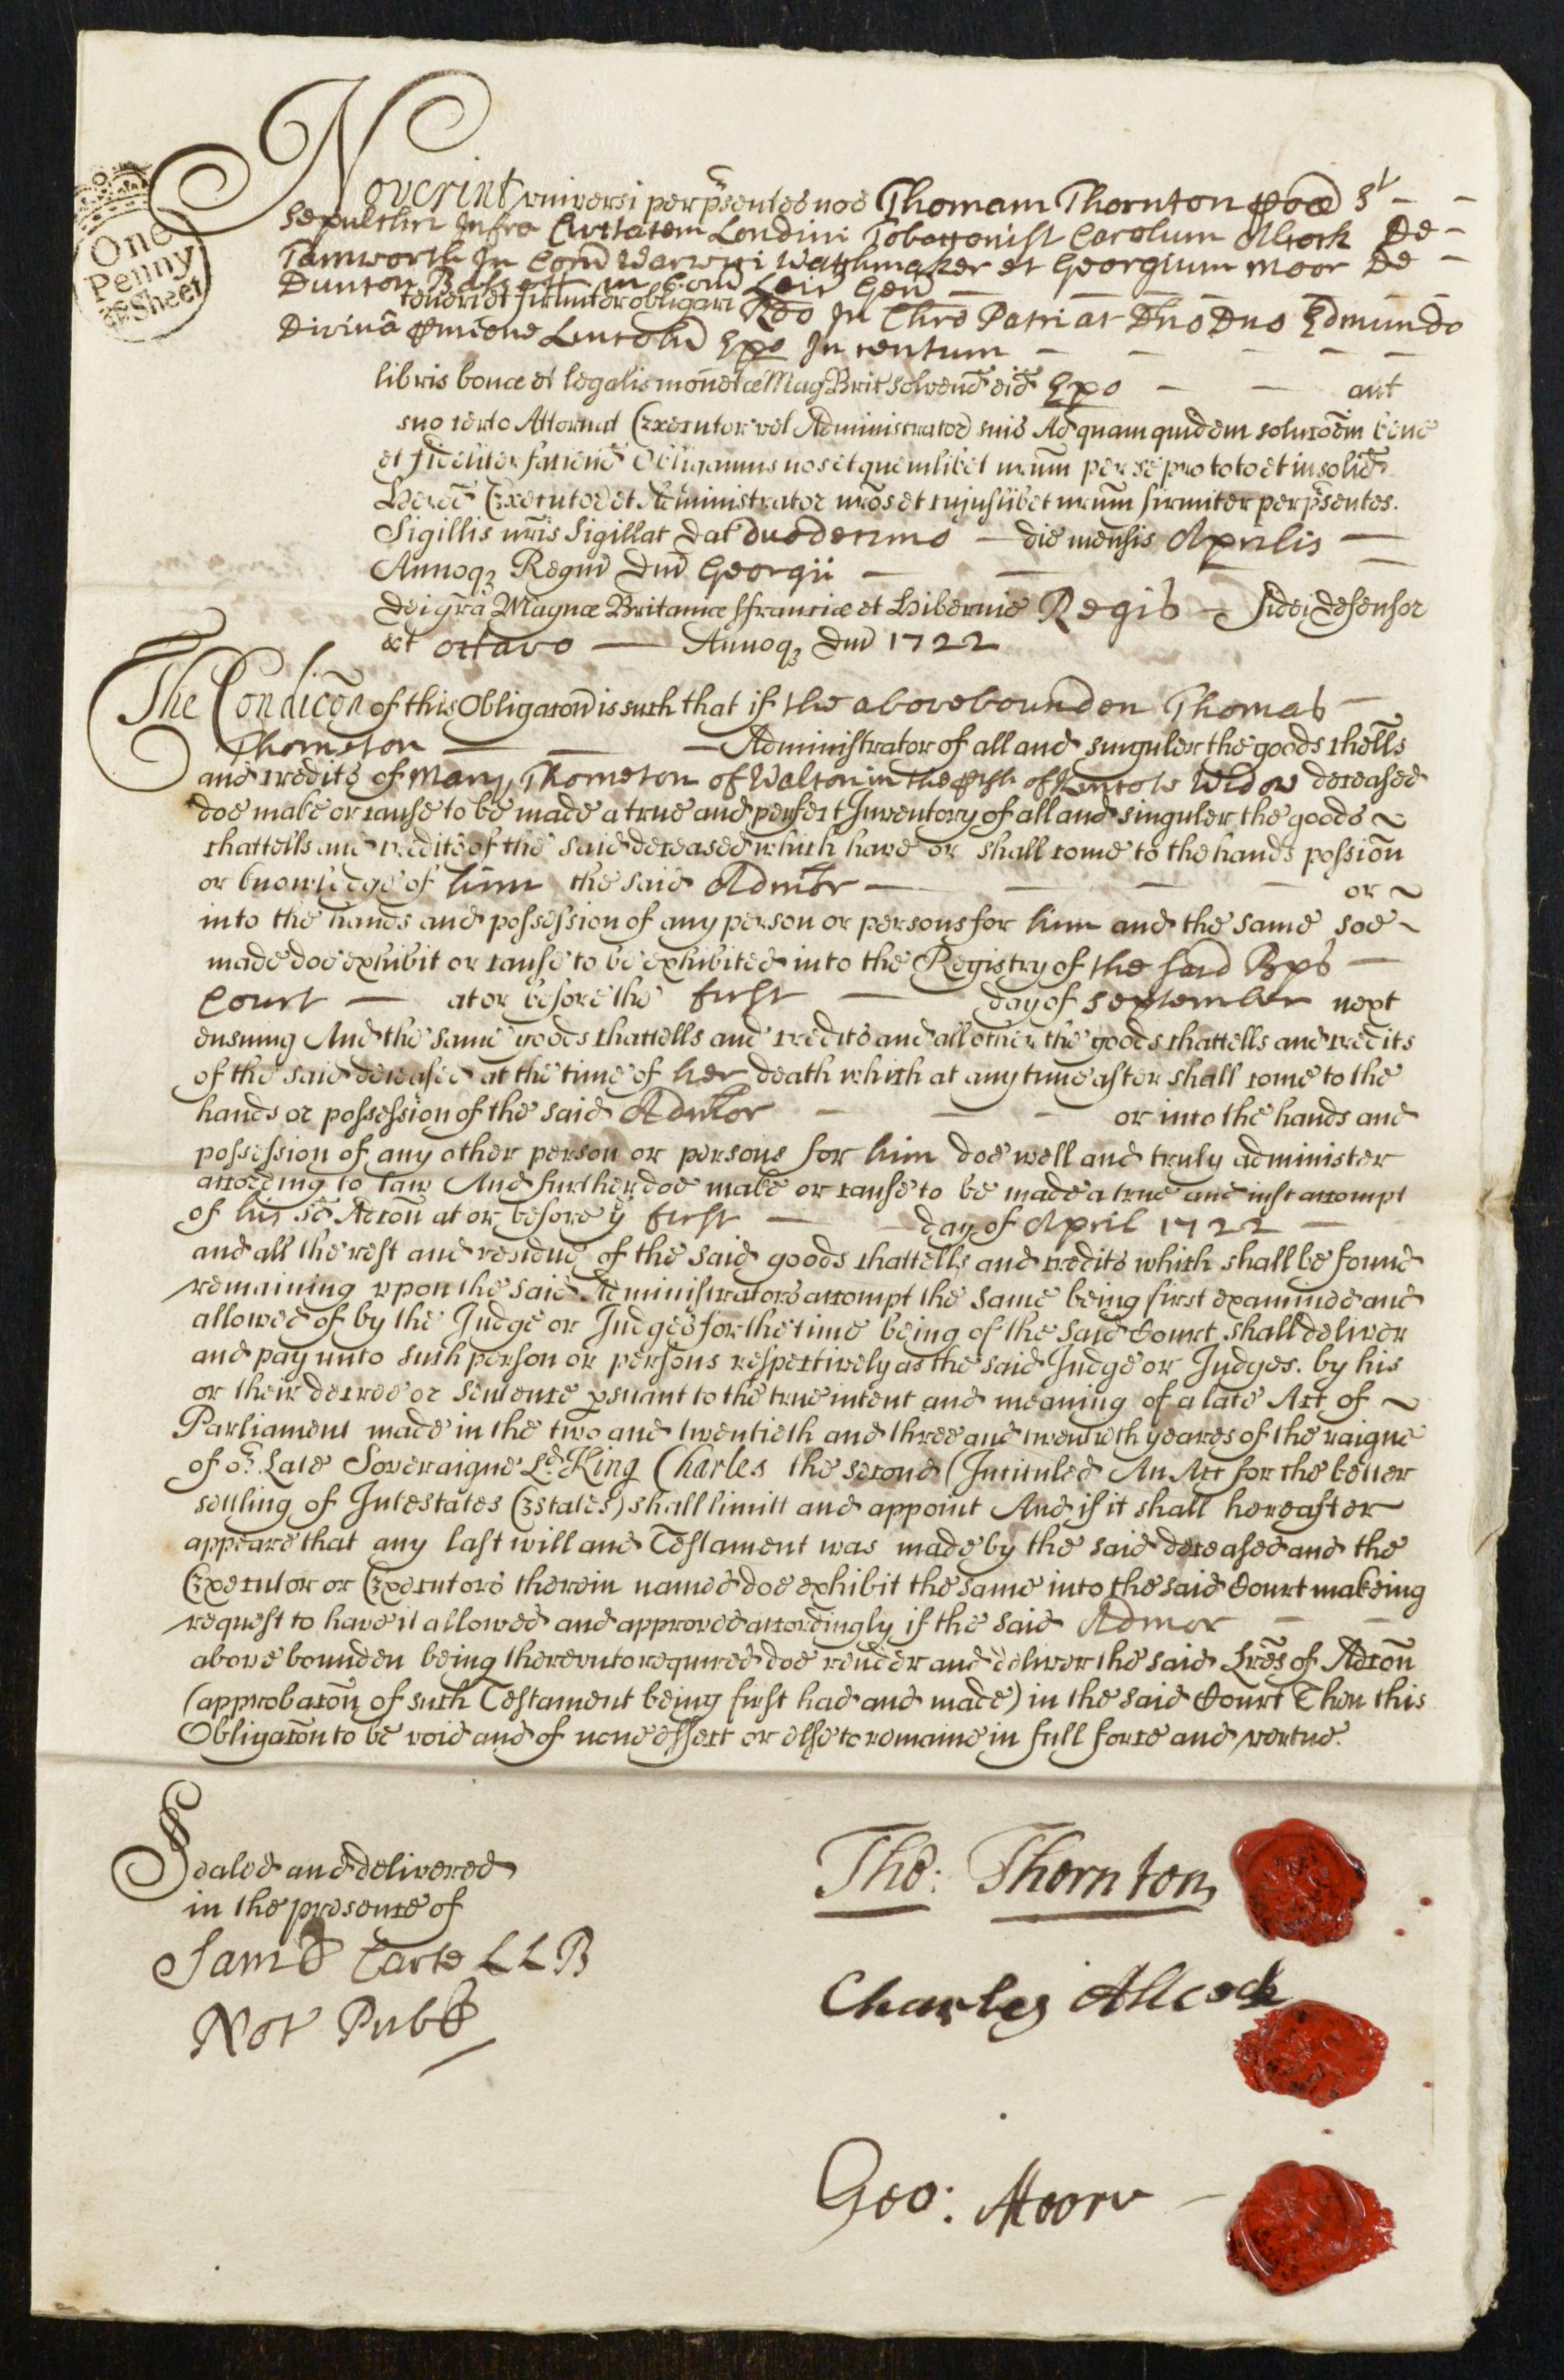 One
Penny
Sheet
Noverint universi per p̃sentes nos Thomam Thornton poch St
Sepulchri Infra Civitatem Londini Tobacconist Carolum Allcock De
Tamworth In Com̃ Warwici Watchmaker et Georgium Moor De
Dunton Basset in Com̃ Leic Gen̄
teneri et firmiter obligari Rdo In Chro Patri ac Dno Dno Edmundo
Divinâ Lincoln̄ Epo In centum
libris bonæ et legalis monetæ Mag Brit solvend eid Epo aut
suo certo Attornat Executor vel Administrator suis Ad quam quidem soluc̃oem bene
et fideliter faciend Obligamus nos et quemlibet nr̃um per se pro toto et in solid
Hered Executor et Administrator nr̃os et cujuslibet nr̃um firmiter per p̃sentes.
Sigillis nr̃is Sigillat dat duodecimo die mensis Aprilis
Annoq3 Regni Dni Georgii
Dei gr̃a Magnæ Britanniæ ffranciæ et Hiberniæ Regis fidei defensor
&t octavo Annoq3 Dni 1722
The Condic̃on of this Obligac̃on is such that if the abovebounden Thomas
Thornton Administrator of all and singuler the goods chells
and credits of Mary Thornton of Walton in the psh of Widow deceased
doe make or cause to be made a true and perfect Inventory of all and singuler the goods
chattells and credits of the said deceased which have or shall come to the hands possion
or knowledge of him the said Admtor or
into the hands and possession of any person or persons for him and the same soe
made doe exhibit or cause to be exhibited into the Registry of the said Bps
Court at or before the first day of September next
ensuing And the same goods chattells and credits and all other the goods chattells and credits
of the said deceased at the time of her death which at any time after shall come to the
hands or possession of the said Admtor or into the hands and
possession of any other person or persons for him doe well and truly administer
according to law And further doe make or cause to be made a true and just accompt
of his sd Adcon at or before ye first day of April 1722
and all the rest and residue of the said goods chattells and credits which shall be found
remaining upon the said Administrators accompt the same being first examined and
allowed of by the Judge or Judges for the time being of the said Court shall deliver
and pay unto such person or persons respectively as the said Judge or Judges. by his
or their decree or sentence psuant to the true intent and meaning of a late Act of
Parliament made in the two and twentieth and three and twentieth yeares of the raigne
of or Late Soveraigne Ld King Charles the second (Intituled An Act for the better
settling of Intestates Estates) shall limitt and appoint And if it shall hereafter
appeare that any last will and Testament was made by the said deceased and the
Executor or Executors therein named doe exhibit the same into the said Court makeing
request to have it allowed and approved accordingly if the said Admor
above bounden being thereunto required doe render and deliver the said Lr̃es of Adcon
(approbac̃on of such Testament being first had and made) in the said Court Then this
Obligac̃on to be void and of none effect or else to remaine in full force and vertue.
Sealed and delivered
in the presence of
Saml Carte LLB
Not Pubb
Tho: Thornton
Charles Allcock
Geo: Moore